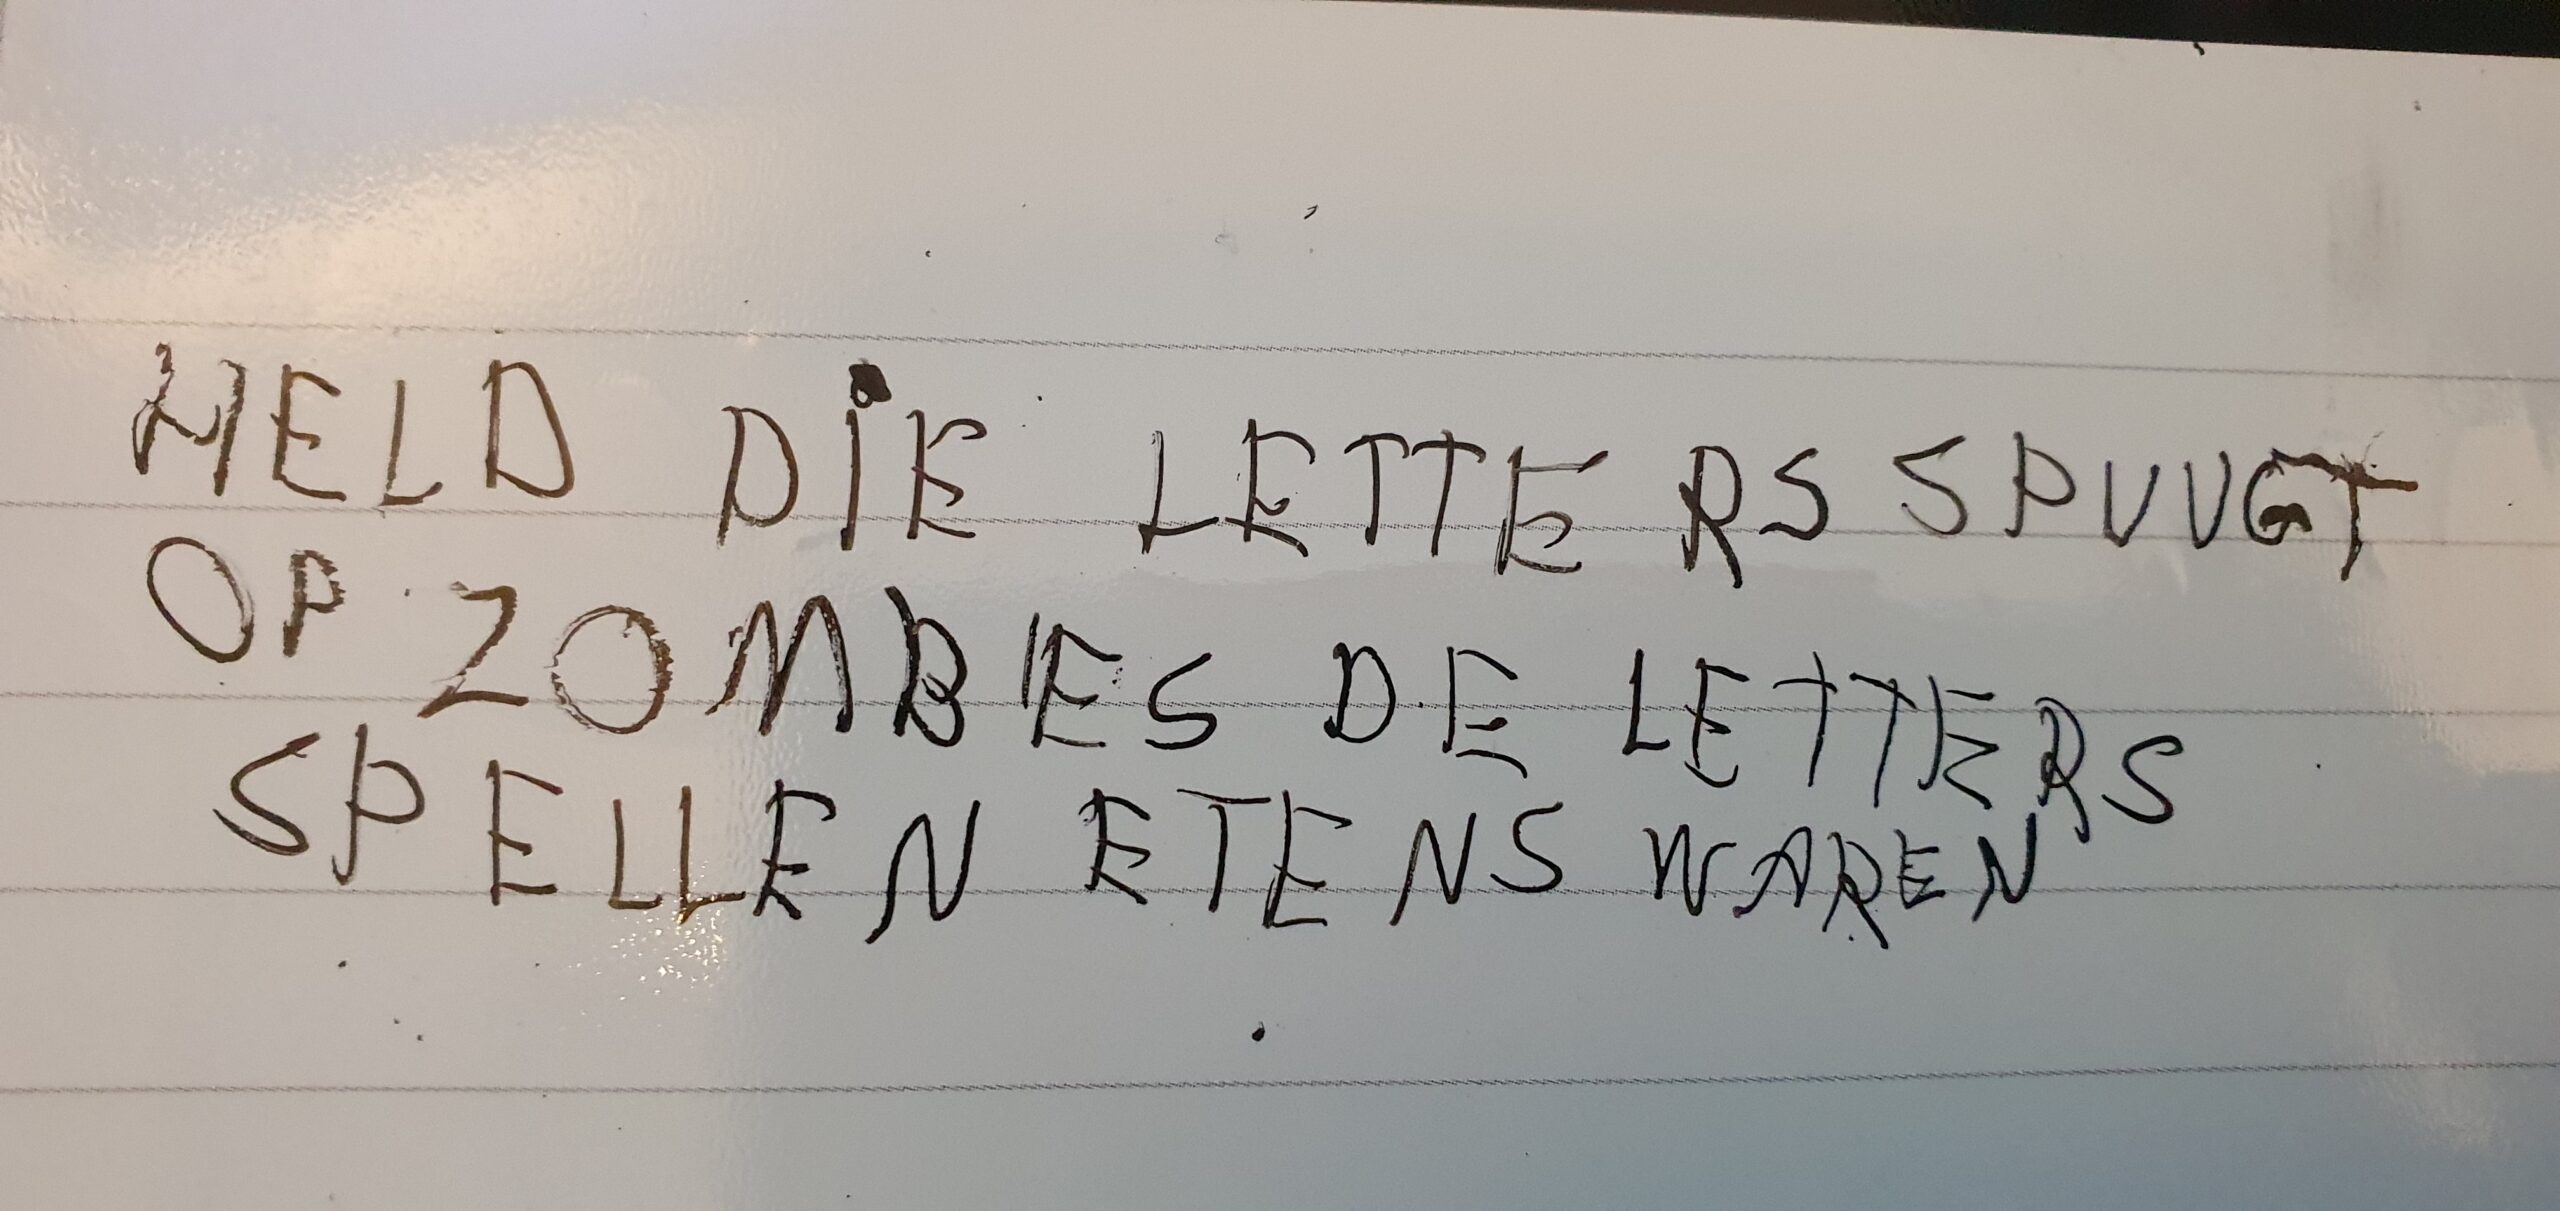 HELD DiE LETTERS SPUUGT
OP ZOMBIES DE LETTERS
SPELLEN ETENSWAREN